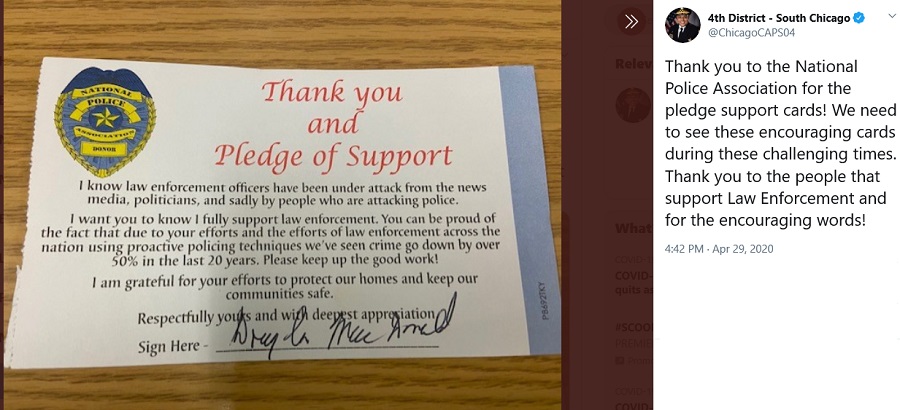 NATIONAL
POLICE
ASSOCIATION
DONOR
Thank you
and
Pledge of Support
I know law enforcement officers have been under attack from the news
media, politicians, and sadly by people who are attacking police.
I want you to know I fully support law enforcement. You can be proud of
the fact that due to your efforts and the efforts of law enforcement across the
nation using proactive policing techniques we've seen crime go down by over
50% in the last 20 years. Please keep up the good work!
I am grateful for your efforts to protect our homes and keep our
communities safe.
Respectfully yours and with deepest appreciation
Sign Here -
PB692TKY
Relev
What
COVID-
quits
#SCOO
PREMIE
COVID-
4th District - South Chicago
@ChicagoCAPS04
Thank you to the National
Police Association for the
pledge support cards! We need
to see these encouraging cards
during these challenging times.
Thank you to the people that
support Law Enforcement and
for the encouraging words!
4:42 PM · Apr 29, 2020